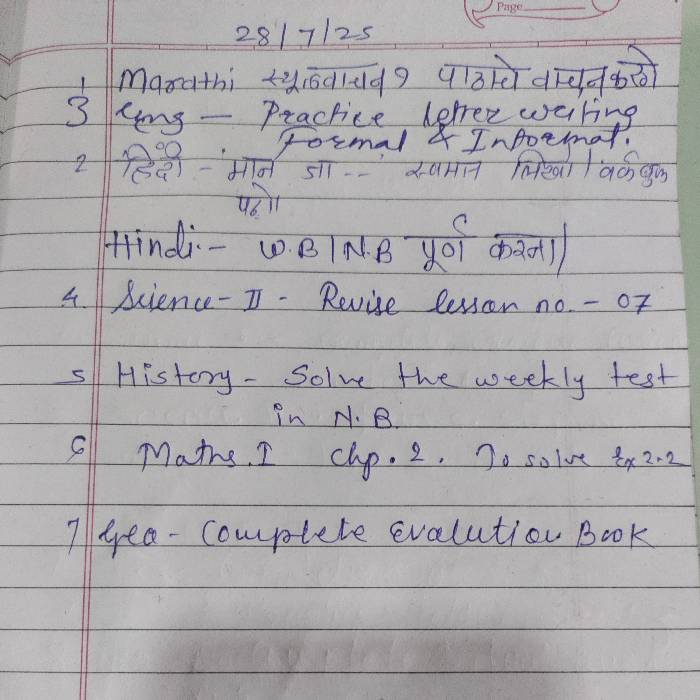 Page
28/7/25
1 Marathi स्थूलवाचन १ पाठाचे वाचन करणे
3 Eng - Practice letter writing
Formal & Informal.
2 हिंदी - मान जा -- स्वमत लिखो। वर्कबुक
पढो।
Hindi:- W.B | N.B पूर्ण करना|
4. Science-II - Revise lesson no. - 07
5 History - Solve the weekly test
in N.B.
6 Maths.I Chp. 2. To solve Ex 2.2
7 Geo - Complete Evalution Book